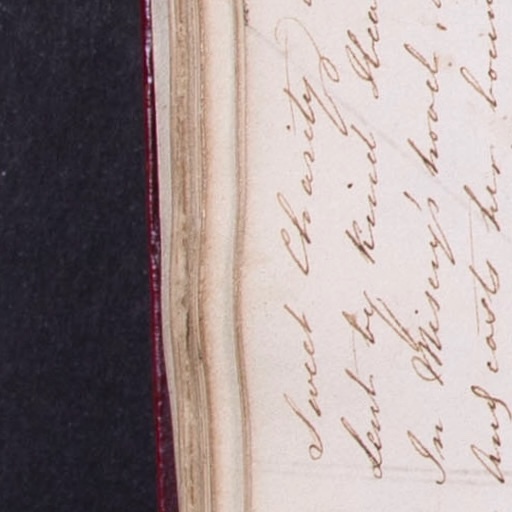 Sweet Charity
Sent by kind Hea
In Misery's hovel,
And casts her boun